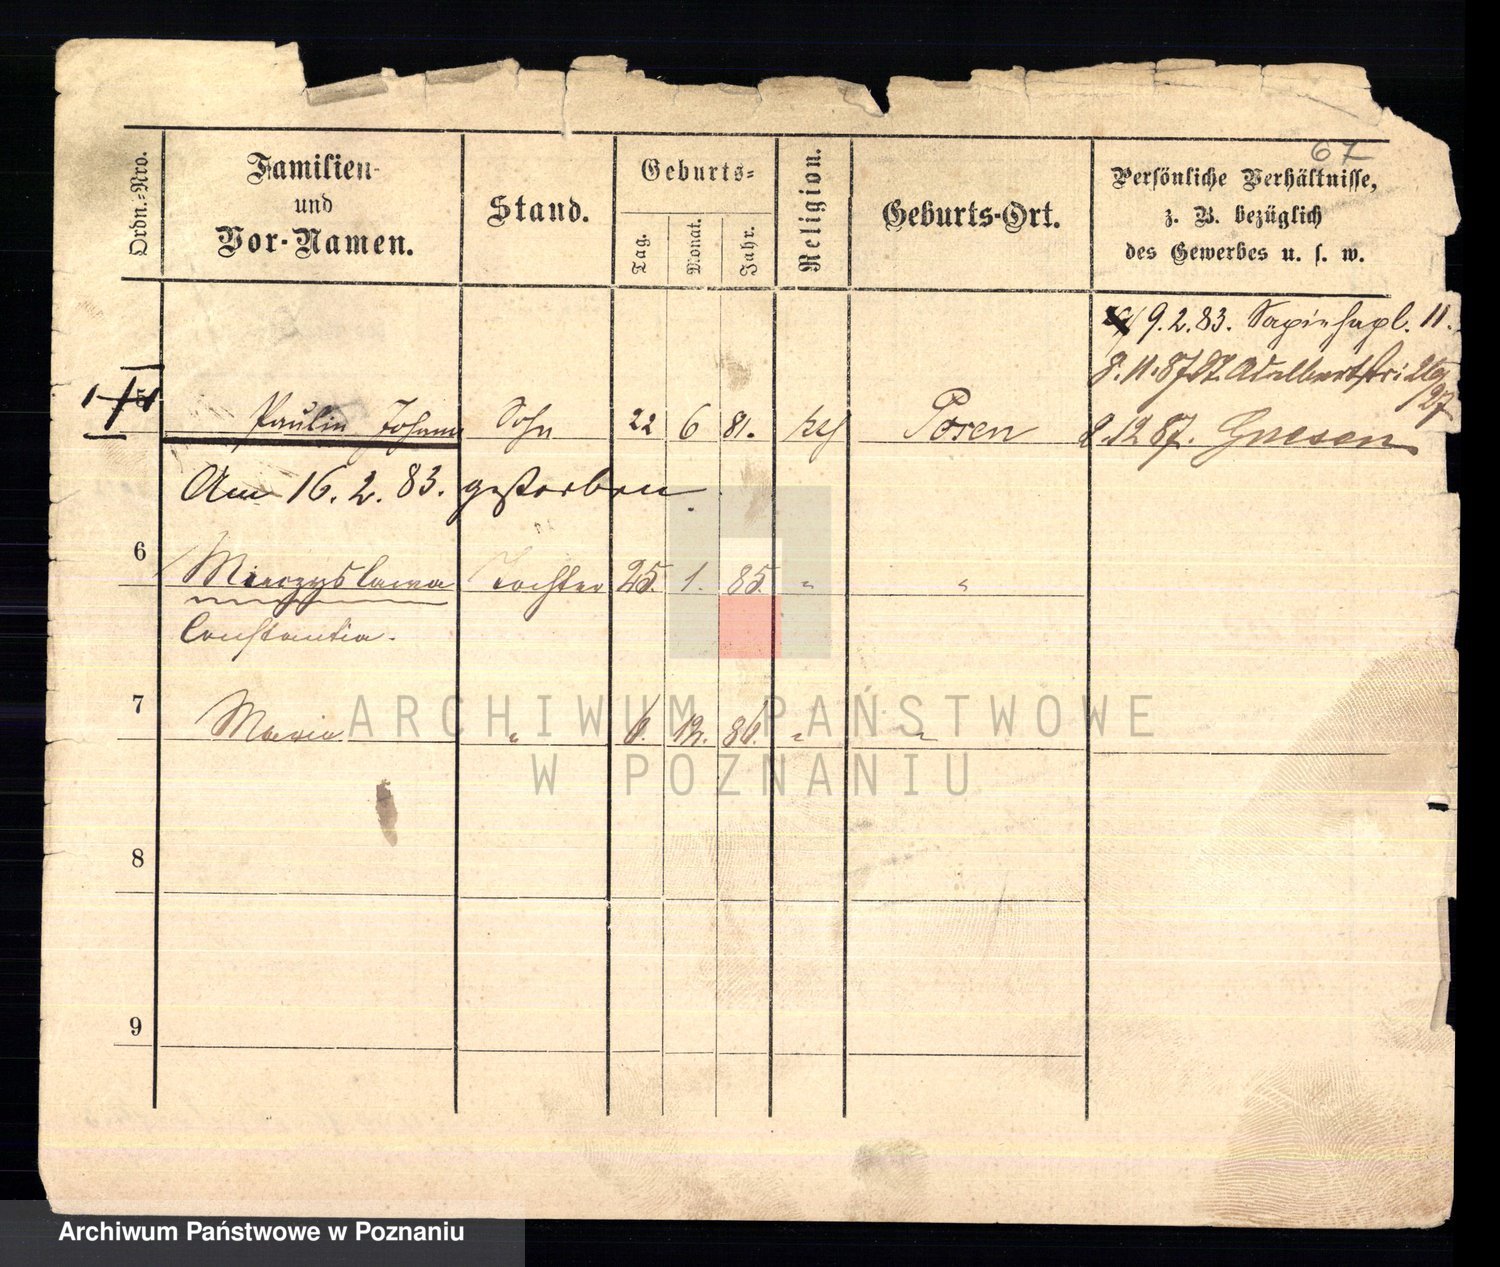 67
Ordn.-Nro.
Familien-
und
Vor-Namen.
Stand.
Geburts-
Tag.
Monat.
Jahr.
Religion.
Geburts-Ort.
Persönliche Verhältnisse,
z. B. bezüglich
des Gewerbes u. s. w.
9. 2. 83. Sapiehapl. 11.
8. 11. 87 St. Adalbertstr.
5 Paulin Johann Sohn 22 6 81. Posen 2. 12 87. Gnesen
Am 16. 2. 83. gestorben
6 Mieczyslawa Tochter 25. 1. 85. " "
Constantia.
7 Maria " 6. 12. 86. " "
8
9
ARCHIWUM PAŃSTWOWE
W POZNANIU
Archiwum Państwowe w Poznaniu